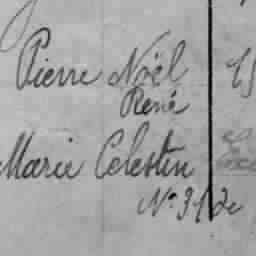 Pierre Noël
René
Marie Celestin
N° 31 de